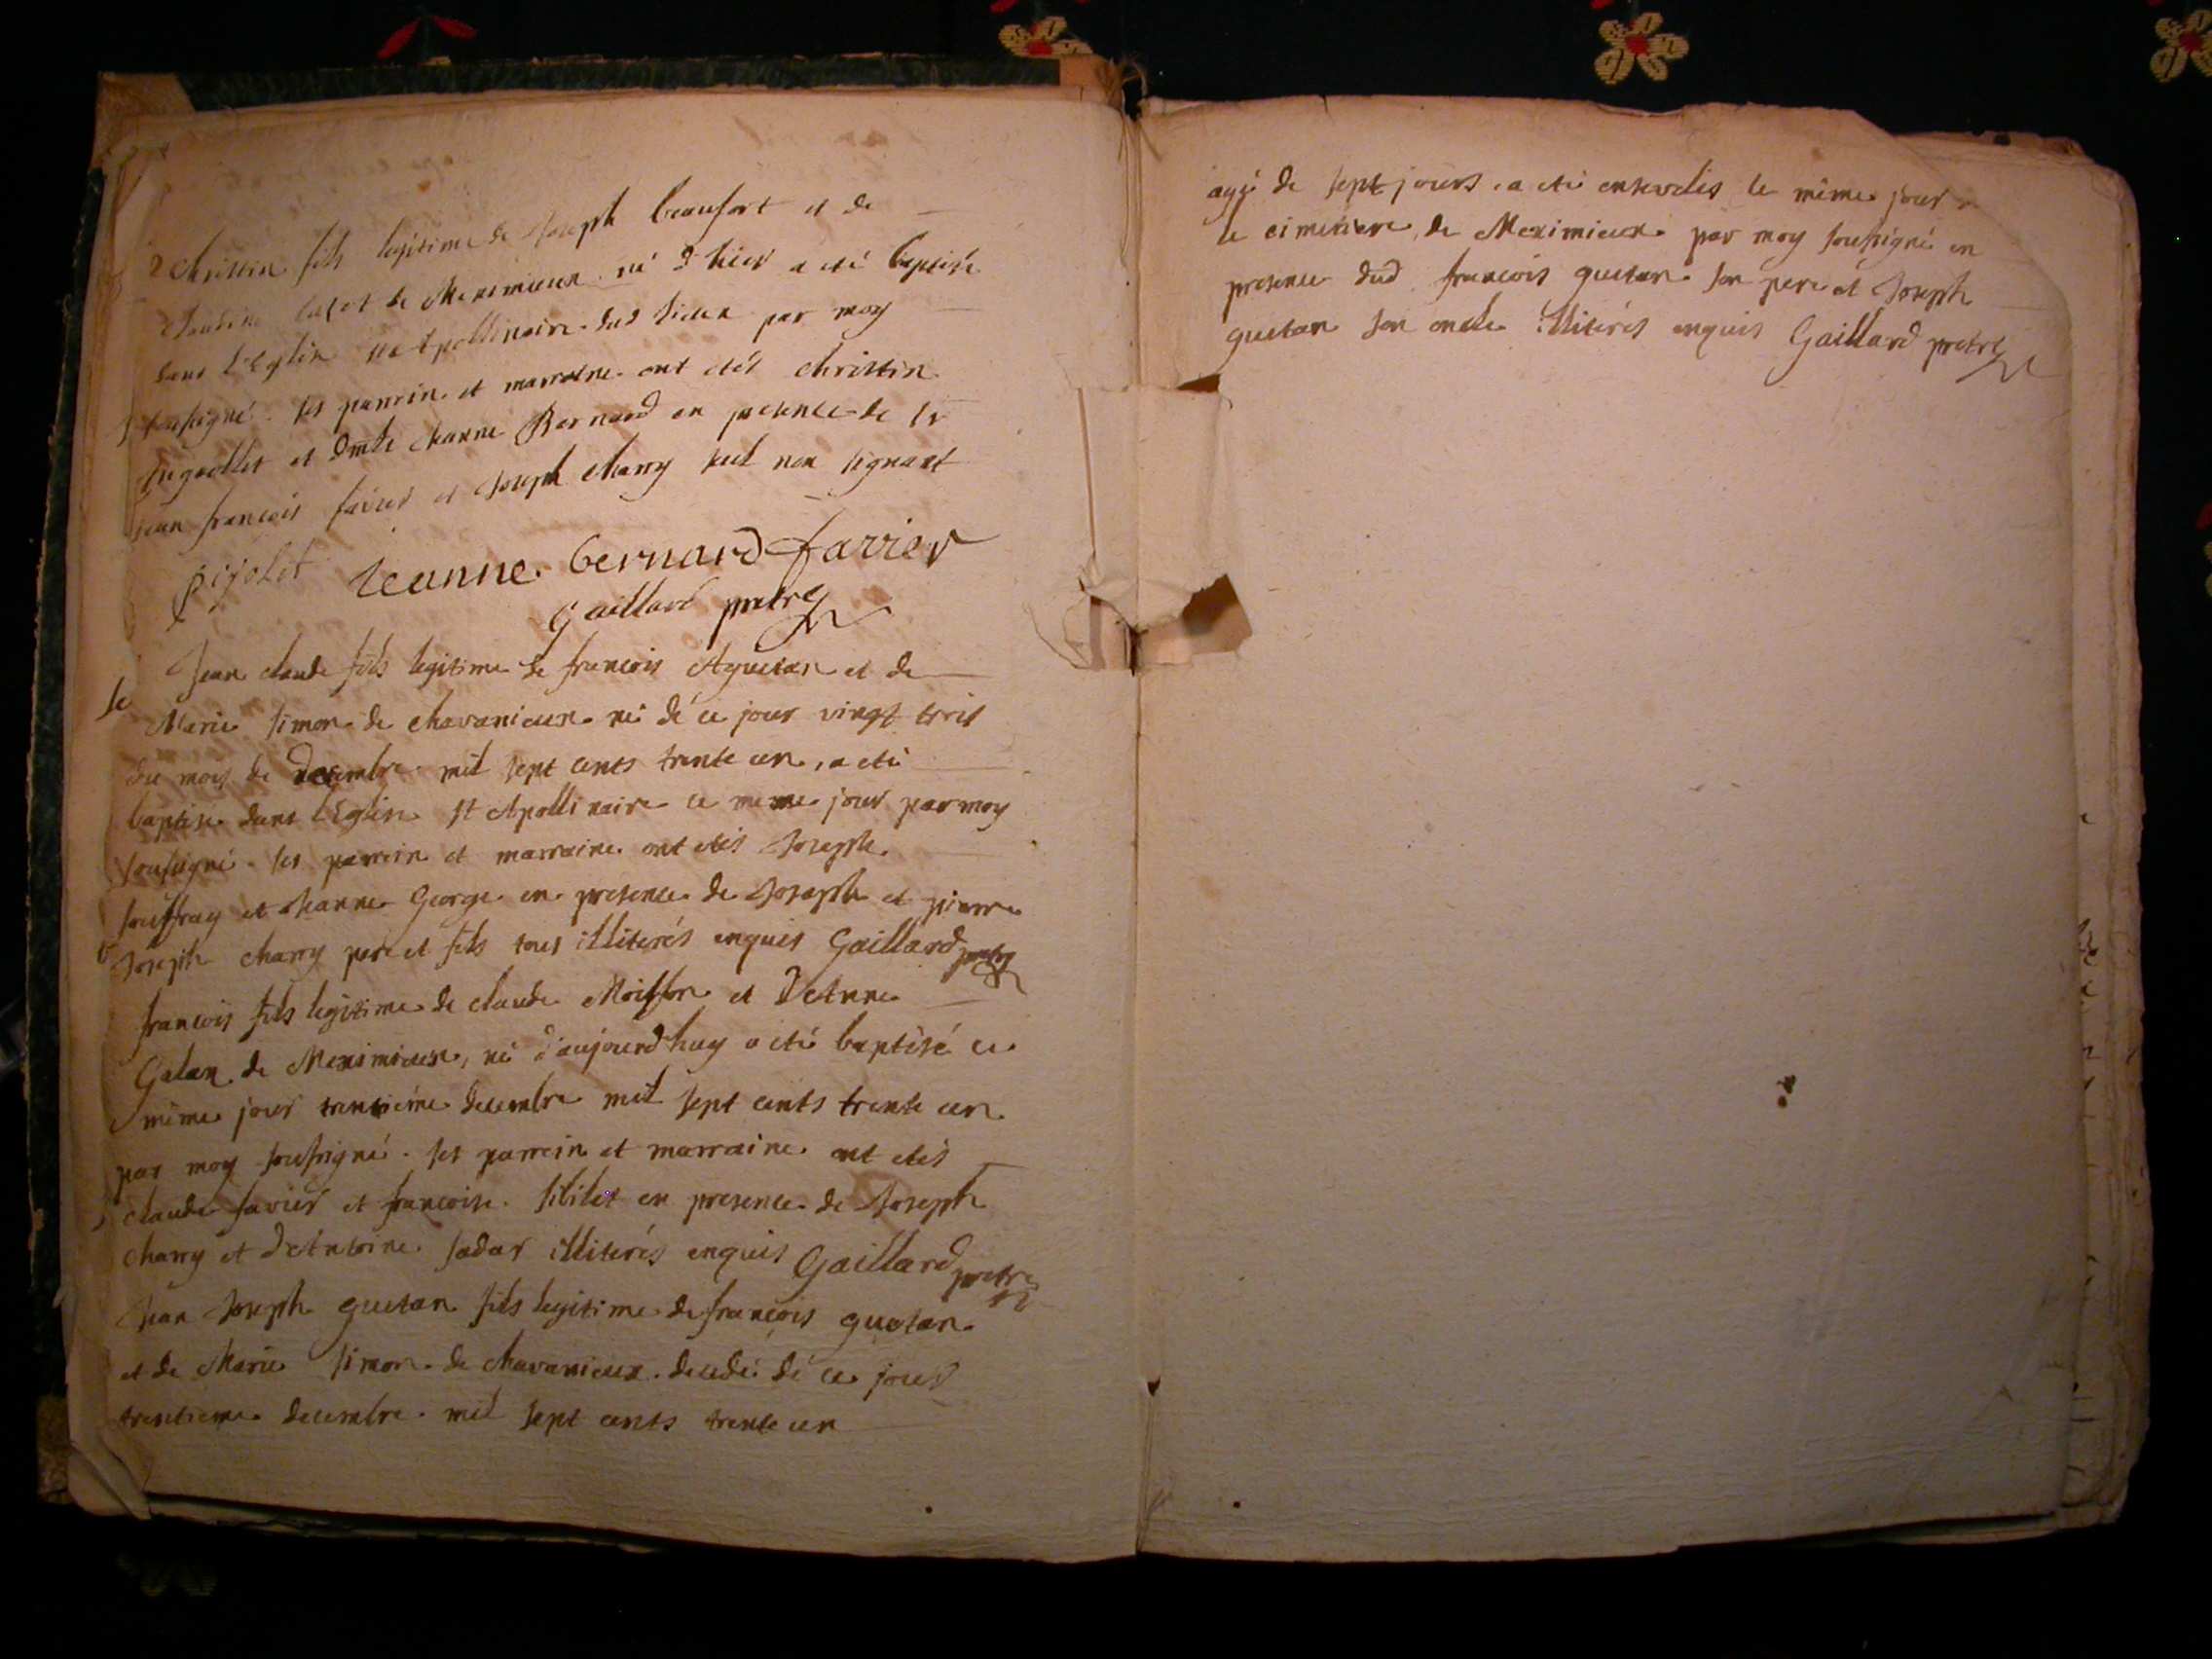 Christin fils legitime de Joseph beaufort et de
Claudine de Meximieux né d'hier a eté baptisé
dans l'Eglise st Apollinaire dud lieux par moy
soussigné. ses parrin et marraine ont etés christin
et dmlle Jeanne Bernard en presence de sr
jean françois favier et Joseph Charry seul non signant
pijolet Jeanne bernard favier
Gaillard pretre
Jean claude fils legitime de francois Aguetan et de
Marie simon de chavanieux né dé ce jour vingt trois
du mois de decembre mil sept cents trente un, a eté
baptise dans l'Eglise st Apollinaire ce meme jour par moy
soussigné. ses parrein et marraine ont etés Joseph
souffray et Jeanne George en presence de Joseph et pierre
Joseph charry pere et fils tous illiterés enquis Gaillard pretre
francois fils legitime de claude Moisson et d'Anne
Galan de Meximieux, né d'aujourd'huy a eté baptisé ce
même jour trentiéme decembre mil sept cents trente un
par moy soussigné. ses parrein et marraine ont etés
claude favier et francoise sibilet en presence de Joseph
charry et d'Antoine sadar illiterés enquis Gaillard pretre
Jean Joseph guetan fils legitime de françois guetan
et de Marie simon de chavanieux. decedé dé ce jour
trentieme decembre mil sept cents trente un
agé de sept jours. a eté ensevelis le même jour
le cimetiere de Meximieux par moy soussigné en
presence dud francois guetan son pere et Joseph
guetan son oncle illiterés enquis Gaillard pretre